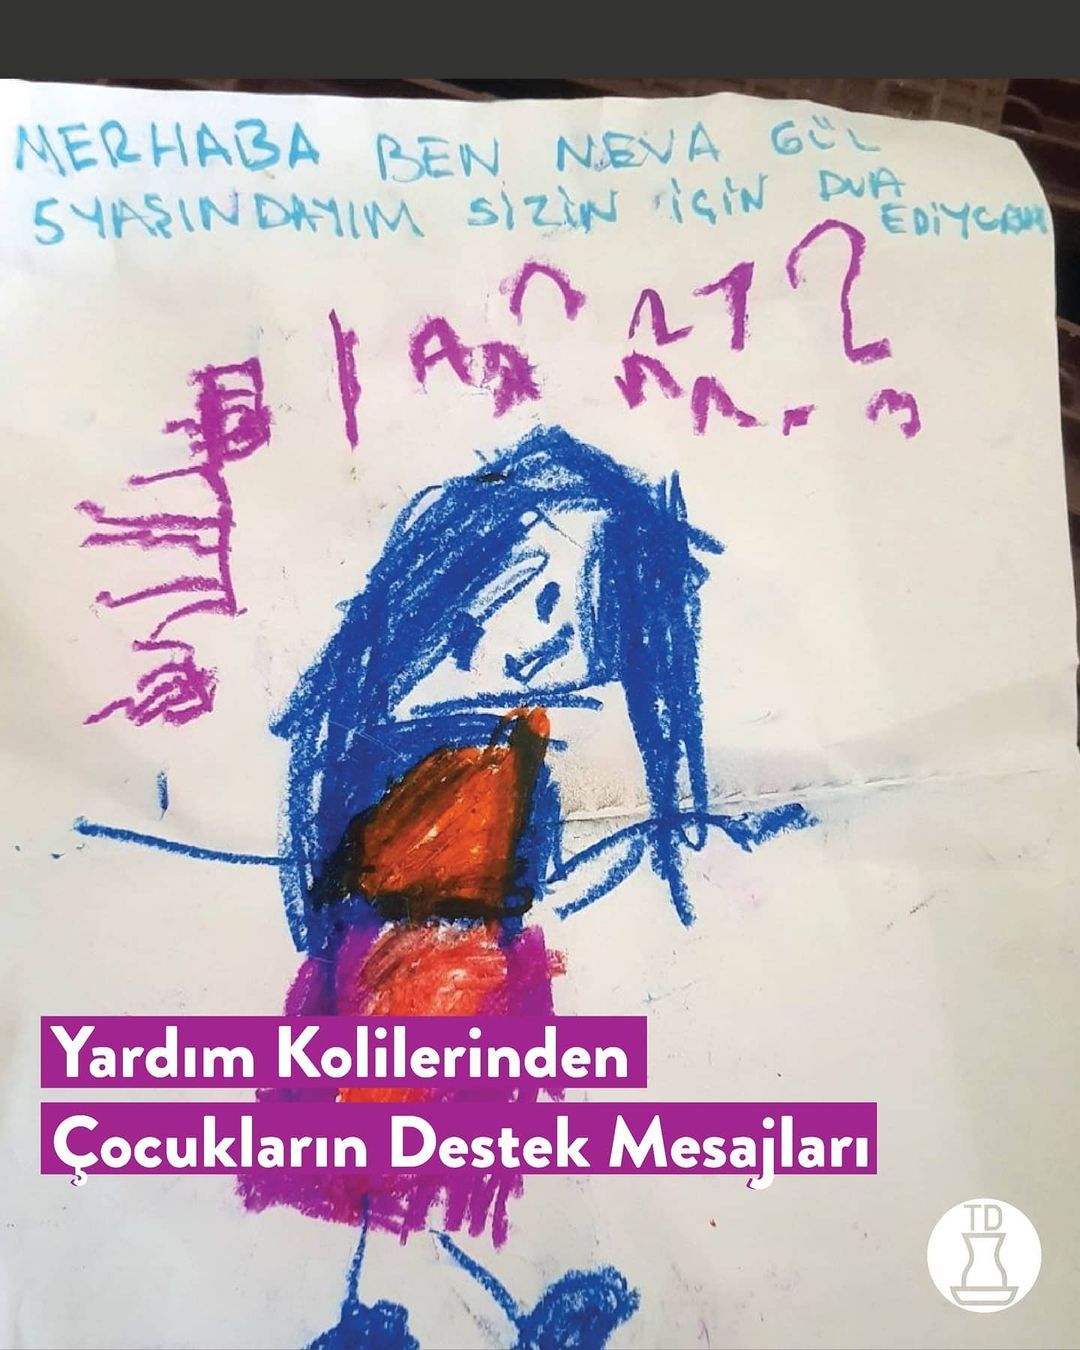 MERHABA BEN NEVA GÜL
5 YAŞINDAYIM SİZİN İÇİN DUA
EDİYORUM
Yardım Kolilerinden
Çocukların Destek Mesajları
TD